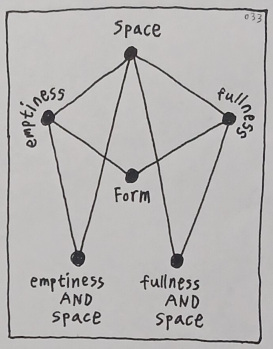 033
Space
emptiness
fullness
Form
emptiness
AND
Space
fullness
AND
Space